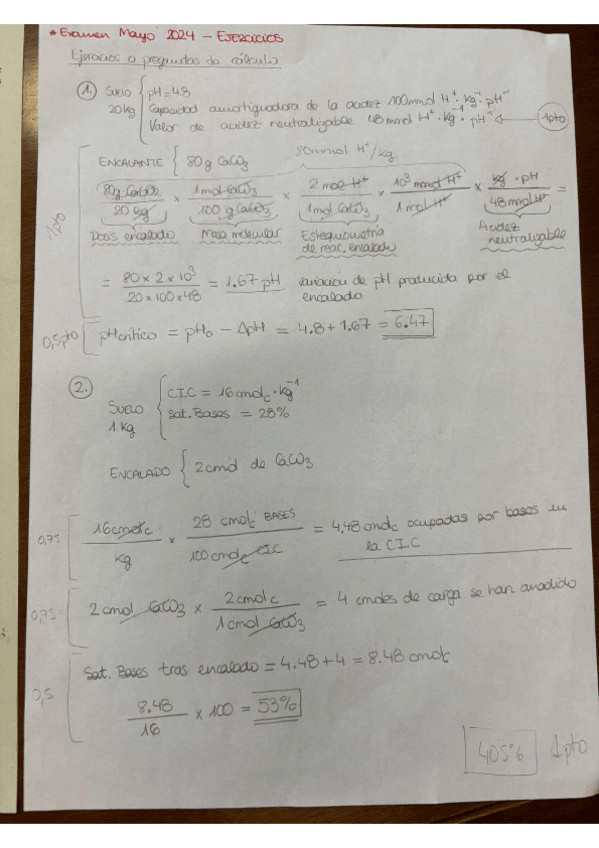 * Examen Mayo 2024 - EJERCICIOS
Ejercicios o preguntas de cálculo
1. SUELO 20kg { pH = 4.8
Capacidad amortiguadora de la acidez 100mmol H⁺·kg⁻¹·pH⁻¹
Valor de acidez neutralizable 48mmol H⁺·kg⁻¹·pH⁻¹ ← 1pto
80mmol H⁺/kg
ENCALANTE { 80g CaCO₃
1pto
80g CaCO₃ / 20 kg × 1mol CaCO₃ / 100 g CaCO₃ × 2 mol H⁺ / 1mol CaCO₃ × 10³ mmol H⁺ / 1 mol H⁺ × kg · pH / 48 mmol H⁺ =
Dosis encalado Masa molecular Estequiometría de reac. encalado Acidez neutralizable
= 80 × 2 × 10³ / 20 × 100 × 48 = 1.67 pH variación de pH producida por el encalado
0,5pto [ pHcrítico = pH₀ - ΔpH = 4.8 + 1.67 = 6.47
2. SUELO 1 kg { C.I.C = 16 cmolc · kg⁻¹
Sat. Bases = 28%
ENCALADO { 2 cmol de CaCO₃
0,75 [ 16 cmolc / kg × 28 cmolc BASES / 100 cmolc CIC = 4.48 cmolc ocupadas por bases en la C.I.C
0,75 [ 2 cmol CaCO₃ × 2 cmol c / 1 cmol CaCO₃ = 4 cmoles de carga se han añadido
0,5 [ Sat. Bases tras encalado = 4.48 + 4 = 8.48 cmolc
8.48 / 16 × 100 = 53%
1pto